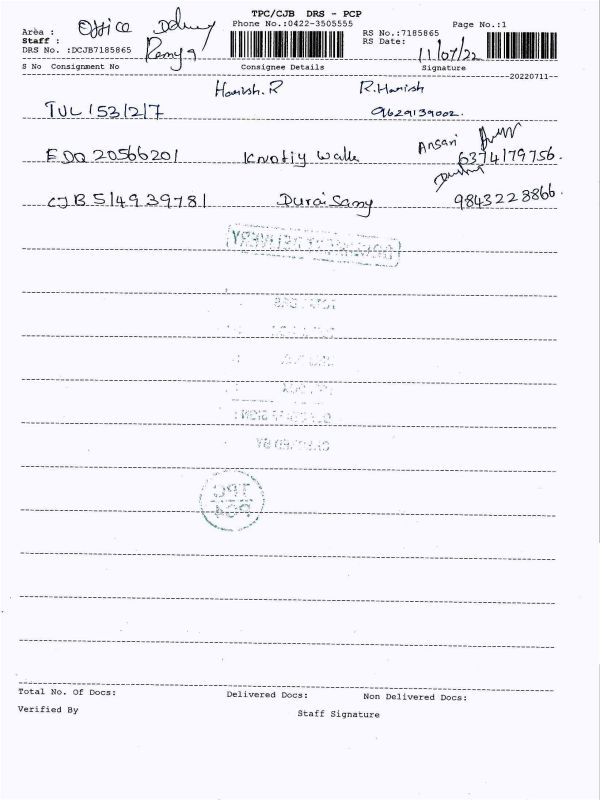 TPC/CJB DRS - PCP
Area : Office Delivery Phone No.:0422-3505555 Page No.:1
Staff : Ramya RS No.:7185865
DRS No. :DCJB7185865 RS Date: 11/07/22
S No Consignment No Consignee Details Signature
20220711--
Harish.R R.Harish
TUL 153127 9629139002
EDQ 20566201 Knotiy Walk Ansari 6374179756.
CJB 514939781 Durai Samy 9843228866.
TPC
Total No. Of Docs: Delivered Docs: Non Delivered Docs:
Verified By Staff Signature